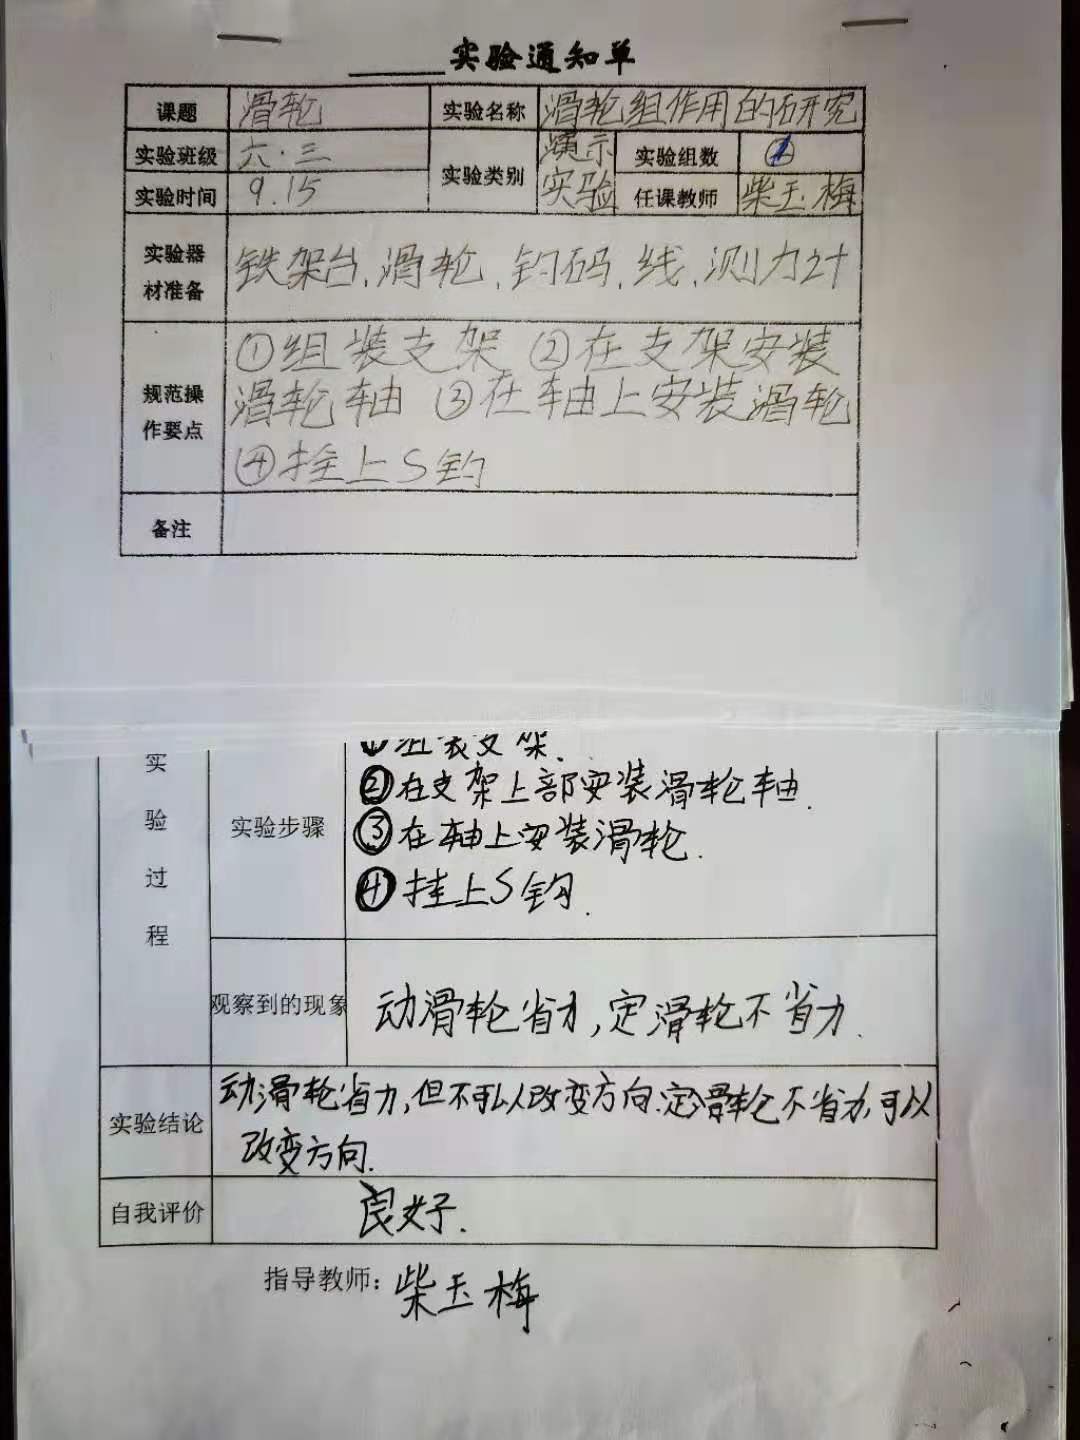 实验通知单
课题 滑轮 实验名称 滑轮组作用的研究
实验班级 六.三 实验类别 演示实验 实验组数
实验时间 9.15 任课教师 柴玉梅
实验器材准备 铁架台、滑轮、钓码、线、测力计
规范操作要点 ①组装支架 ②在支架安装
滑轮轴 ③在轴上安装滑轮
④挂上S钩
备注
实验过程
实验步骤 ①组装支架.
②在支架上部安装滑轮轴.
③在轴上安装滑轮.
④挂上S钩.
观察到的现象 动滑轮省力,定滑轮不省力.
实验结论 动滑轮省力,但不可以改变方向.定滑轮不省力,可以
改变方向.
自我评价 良好.
指导教师:柴玉梅